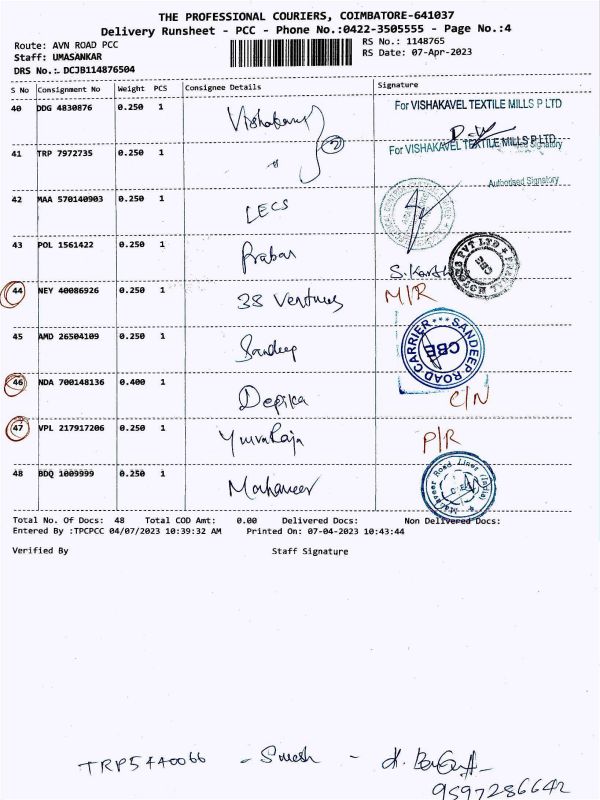 THE PROFESSIONAL COURIERS, COIMBATORE-641037
Delivery Runsheet - PCC - Phone No.:0422-3505555 - Page No.:4
Route: AVN ROAD PCC
Staff: UMASANKAR
DRS No.: DCJB114876504
RS No.: 1148765
RS Date: 07-Apr-2023
S No Consignment No Weight PCS Consignee Details Signature
40 DDG 4830876 0.250 1 For VISHAKAVEL TEXTILE MILLS P LTD
41 TRP 7972735 0.250 1 For VISHAKAVEL TEXTILE MILLS P LTD
Authorised Signatory
42 MAA 570140903 0.250 1 LECS
43 POL 1561422 0.250 1 Praban
44 NEY 40086926 0.250 1 38 Ventures M/R
45 AMD 26504109 0.250 1 Sandeep SANDEEP ROAD CARRIER CBE
46 NDA 700148136 0.400 1 Depika C/N
47 VPL 217917206 0.250 1 YuvaRaja P/R
48 BDQ 1009999 0.250 1 Mahaveer Mahaveer Road Lines (India)
Total No. Of Docs: 48 Total COD Amt: 0.00 Delivered Docs: Non Delivered Docs:
Entered By :TPCPCC 04/07/2023 10:39:32 AM Printed On: 07-04-2023 10:43:44
Verified By Staff Signature
TRP5440066 - Suresh -
9597286642